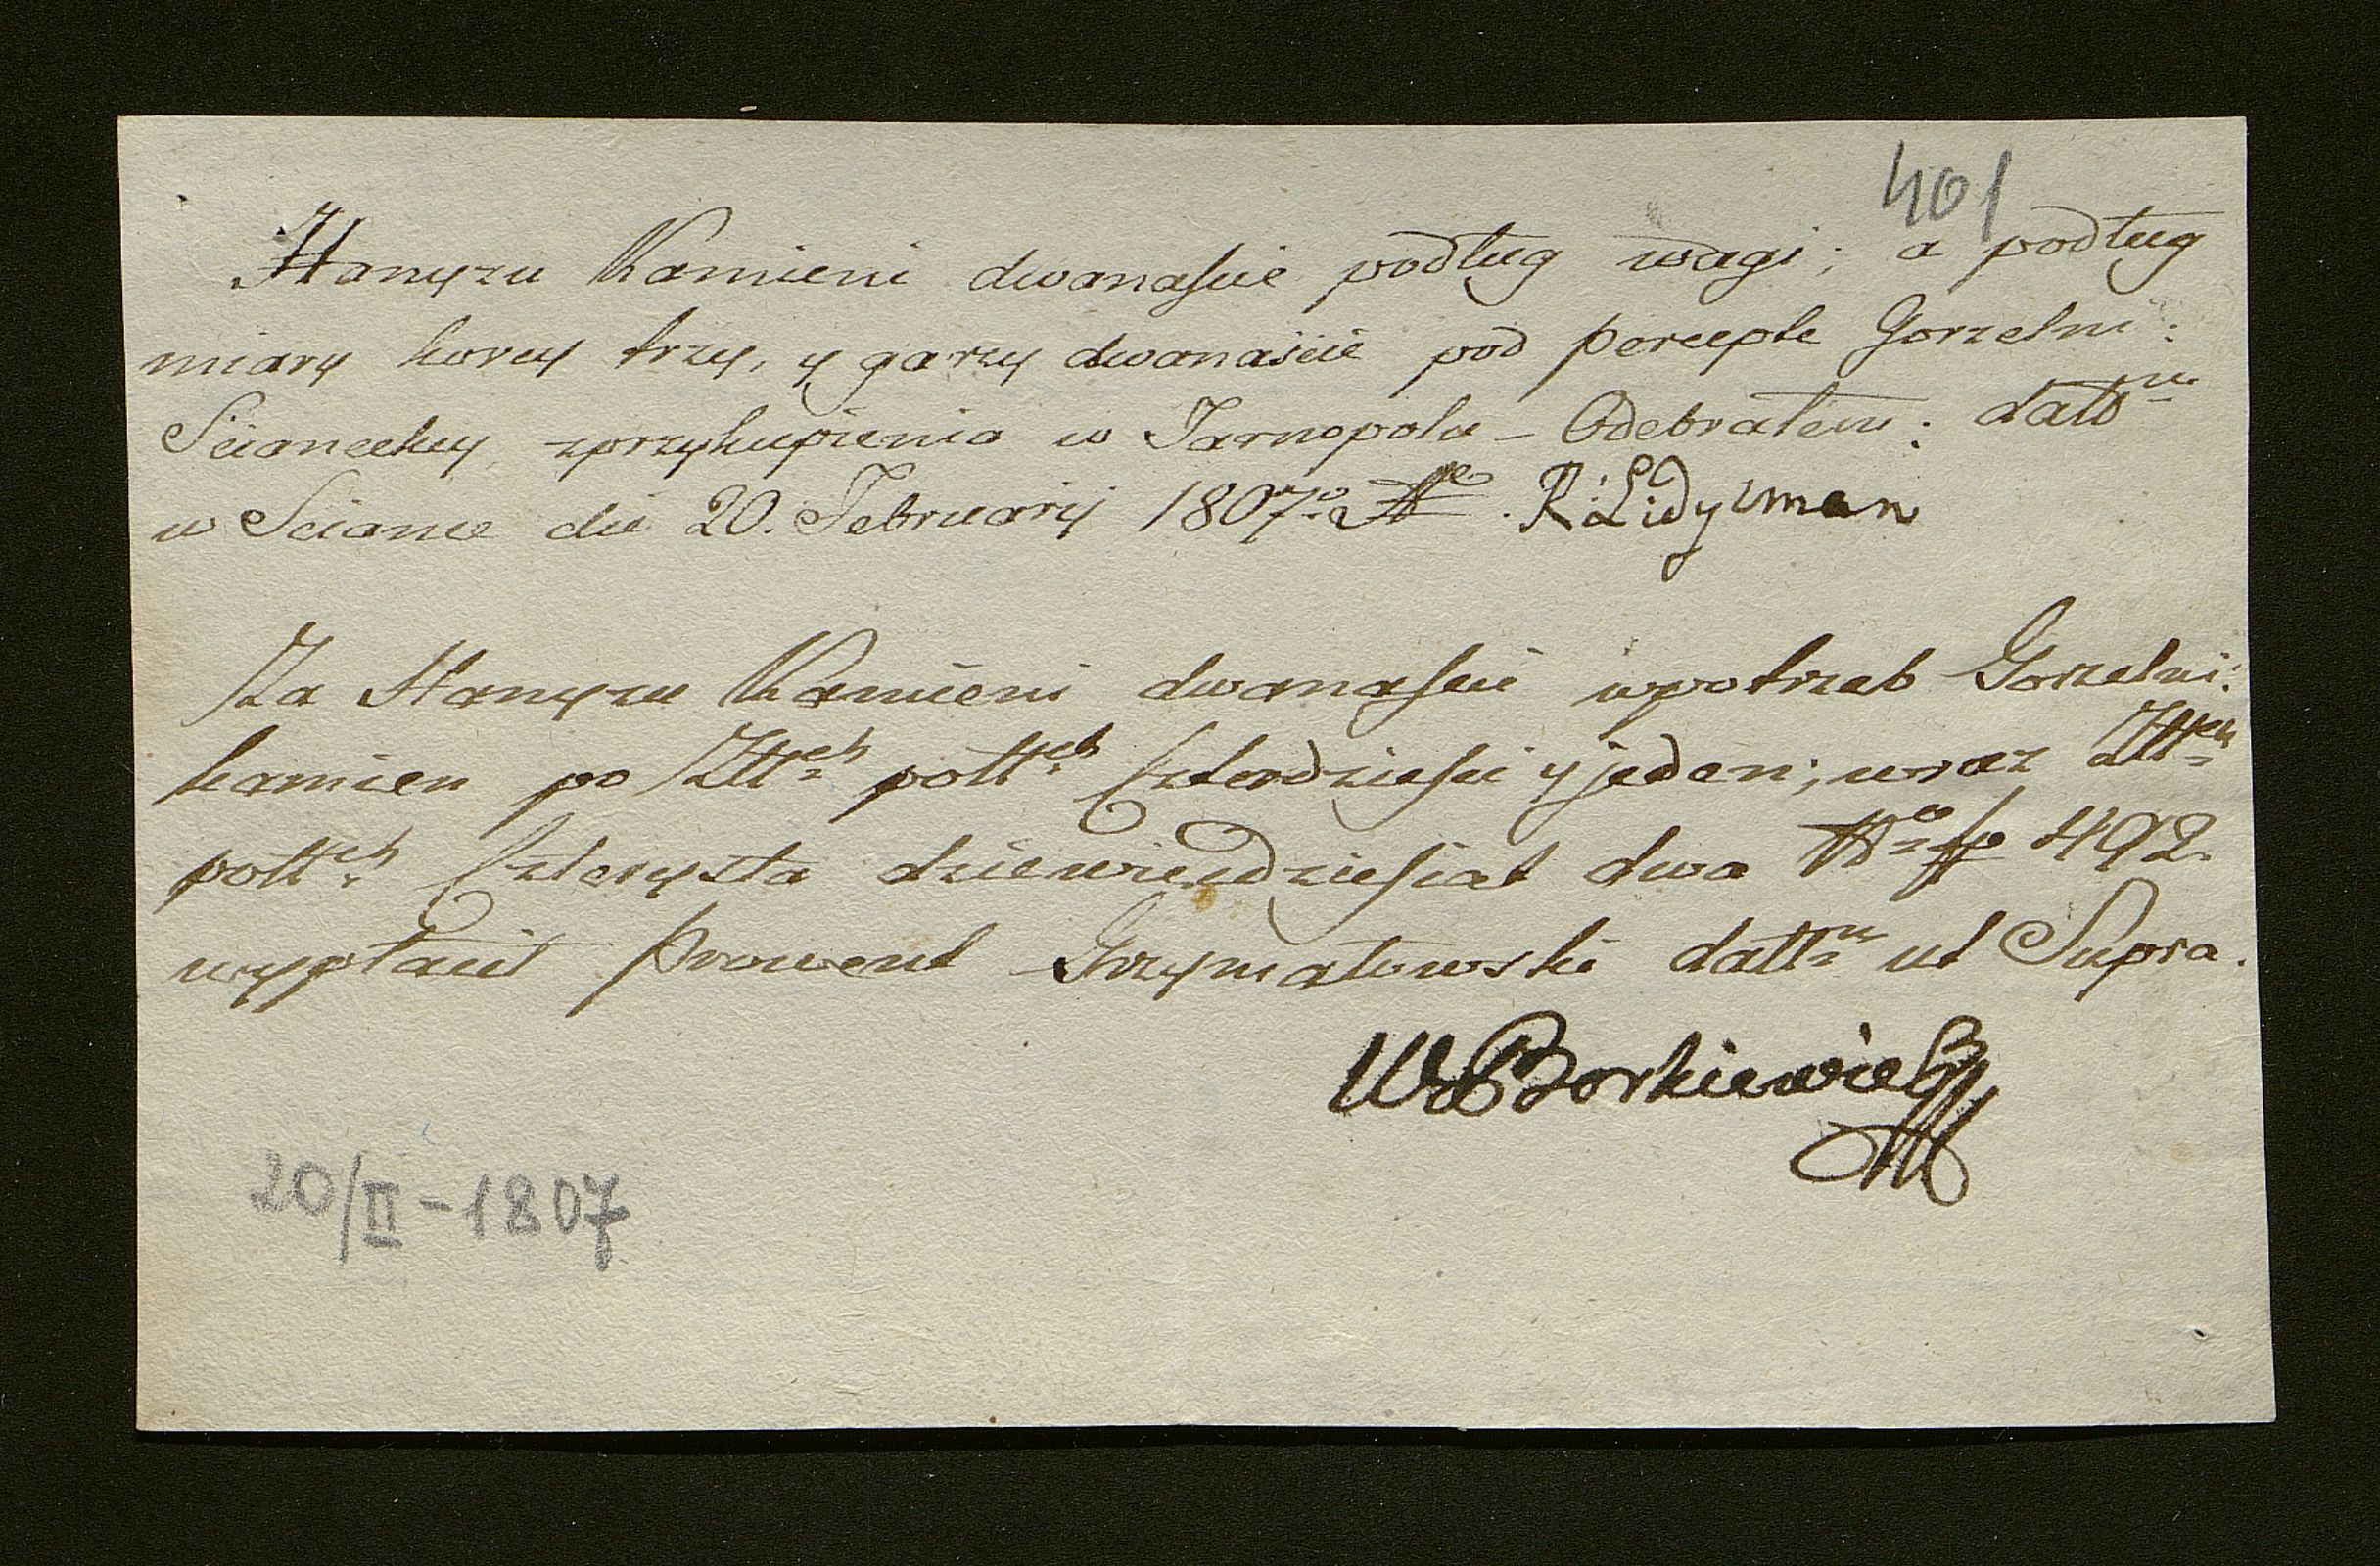 401
Hanyzu Kamieni dwanaście podług wagi; a podług
miary korcy trzy, y garcy dwanaście pod percepte Gorzelni:
Scianeckiy zprzykupienia w Tarnopolu – Odebrałem: datt<sup>m</sup>
w Sciance die 20. Februarij 1807<sup>o</sup> R: Lidyzman
Za Hanyzu Kamieni dwanaście wpotrzeb Gorzelni:
kamien po Złł<sup>ch</sup> polł<sup>ch</sup> Czterdzieści y jeden; wraz Złł<sup>ch</sup>
polł<sup>ch</sup> Czterysta dziewiędziesiat dwa 492.
wypłacił Prowent Grzymałowski datt<sup>m</sup> ut Supra.
W Borkiewicz
20/II – 1807